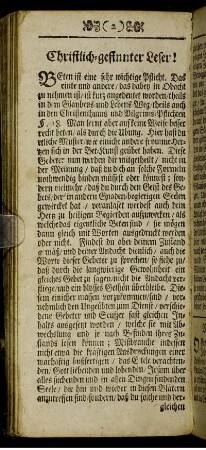 ( 2 )
Christlich-gesinnter Leser!
BEten ist eine sehr wichtige Pflicht. Das
eine und andere, das dabey in Obacht
zu nehmen ist, ist kurz angeordnet worden, theils
in dem Glaubens- und Lebens-Weg, theils auch
in den Christenthums und Pilgrims-Pflichten
Man lernt aber auf keine Weise besser
recht beten, als durch die Ubung. Hier hast du
etliche Muster, wie einicht andere fromme Her-
zen sich in der Bet-Kunst geübet haben. Diese
Gebeter nun werden dir mitgetheilt, nicht in
der Meinung, daß du dich an solche Formeln
nothwendig binden müssest oder könnest, son-
dern vielmehr, daß du durch den Geist des Ge-
bets, der in andern Gnaden-begierigen Seelen
gewircket hat, veranlaßt werdest auch dein
Herz zu heiligen Begierden aufzuwecken, als
welche das eigentliche Beten sind, sie mögen
dann gleich mit Worten ausgedruckt werden
oder nicht. Findest du aber deinem Zustand
gemäß und deiner Andacht dienlich, auch die
Worte dieser Gebeter zu sprechen, so siehe zu,
daß durch die langwierige Gewohnheit ein
gleiches Gebet zu sagen, nicht die Andacht ver-
gehe, und ein blosses Gethön überbleibe. Die-
sem einicher massen vorzukommen, sind vor-
nehmlich den Ungeübten zum Dienst, verschie-
dene Gebeter und Seufzer fast gleichen In-
halts ausgesetzt worden, welche sie mit Ab-
wechslung und je nach Befinden ihres Zu-
stands lesen können; Mißbrauche indessen
nicht etwa die kräftigen Ausdruckungen einer
warhaftig bußfertigen, das Eitele verachten-
den, Gott liebenden und lobenden, Jesum über
alles suchenden und in allen Dingen findenden
Seele, die hin und wieder in diesen Blätern
anzutreffen sind, sondern, daß du solche und der-
gleichen